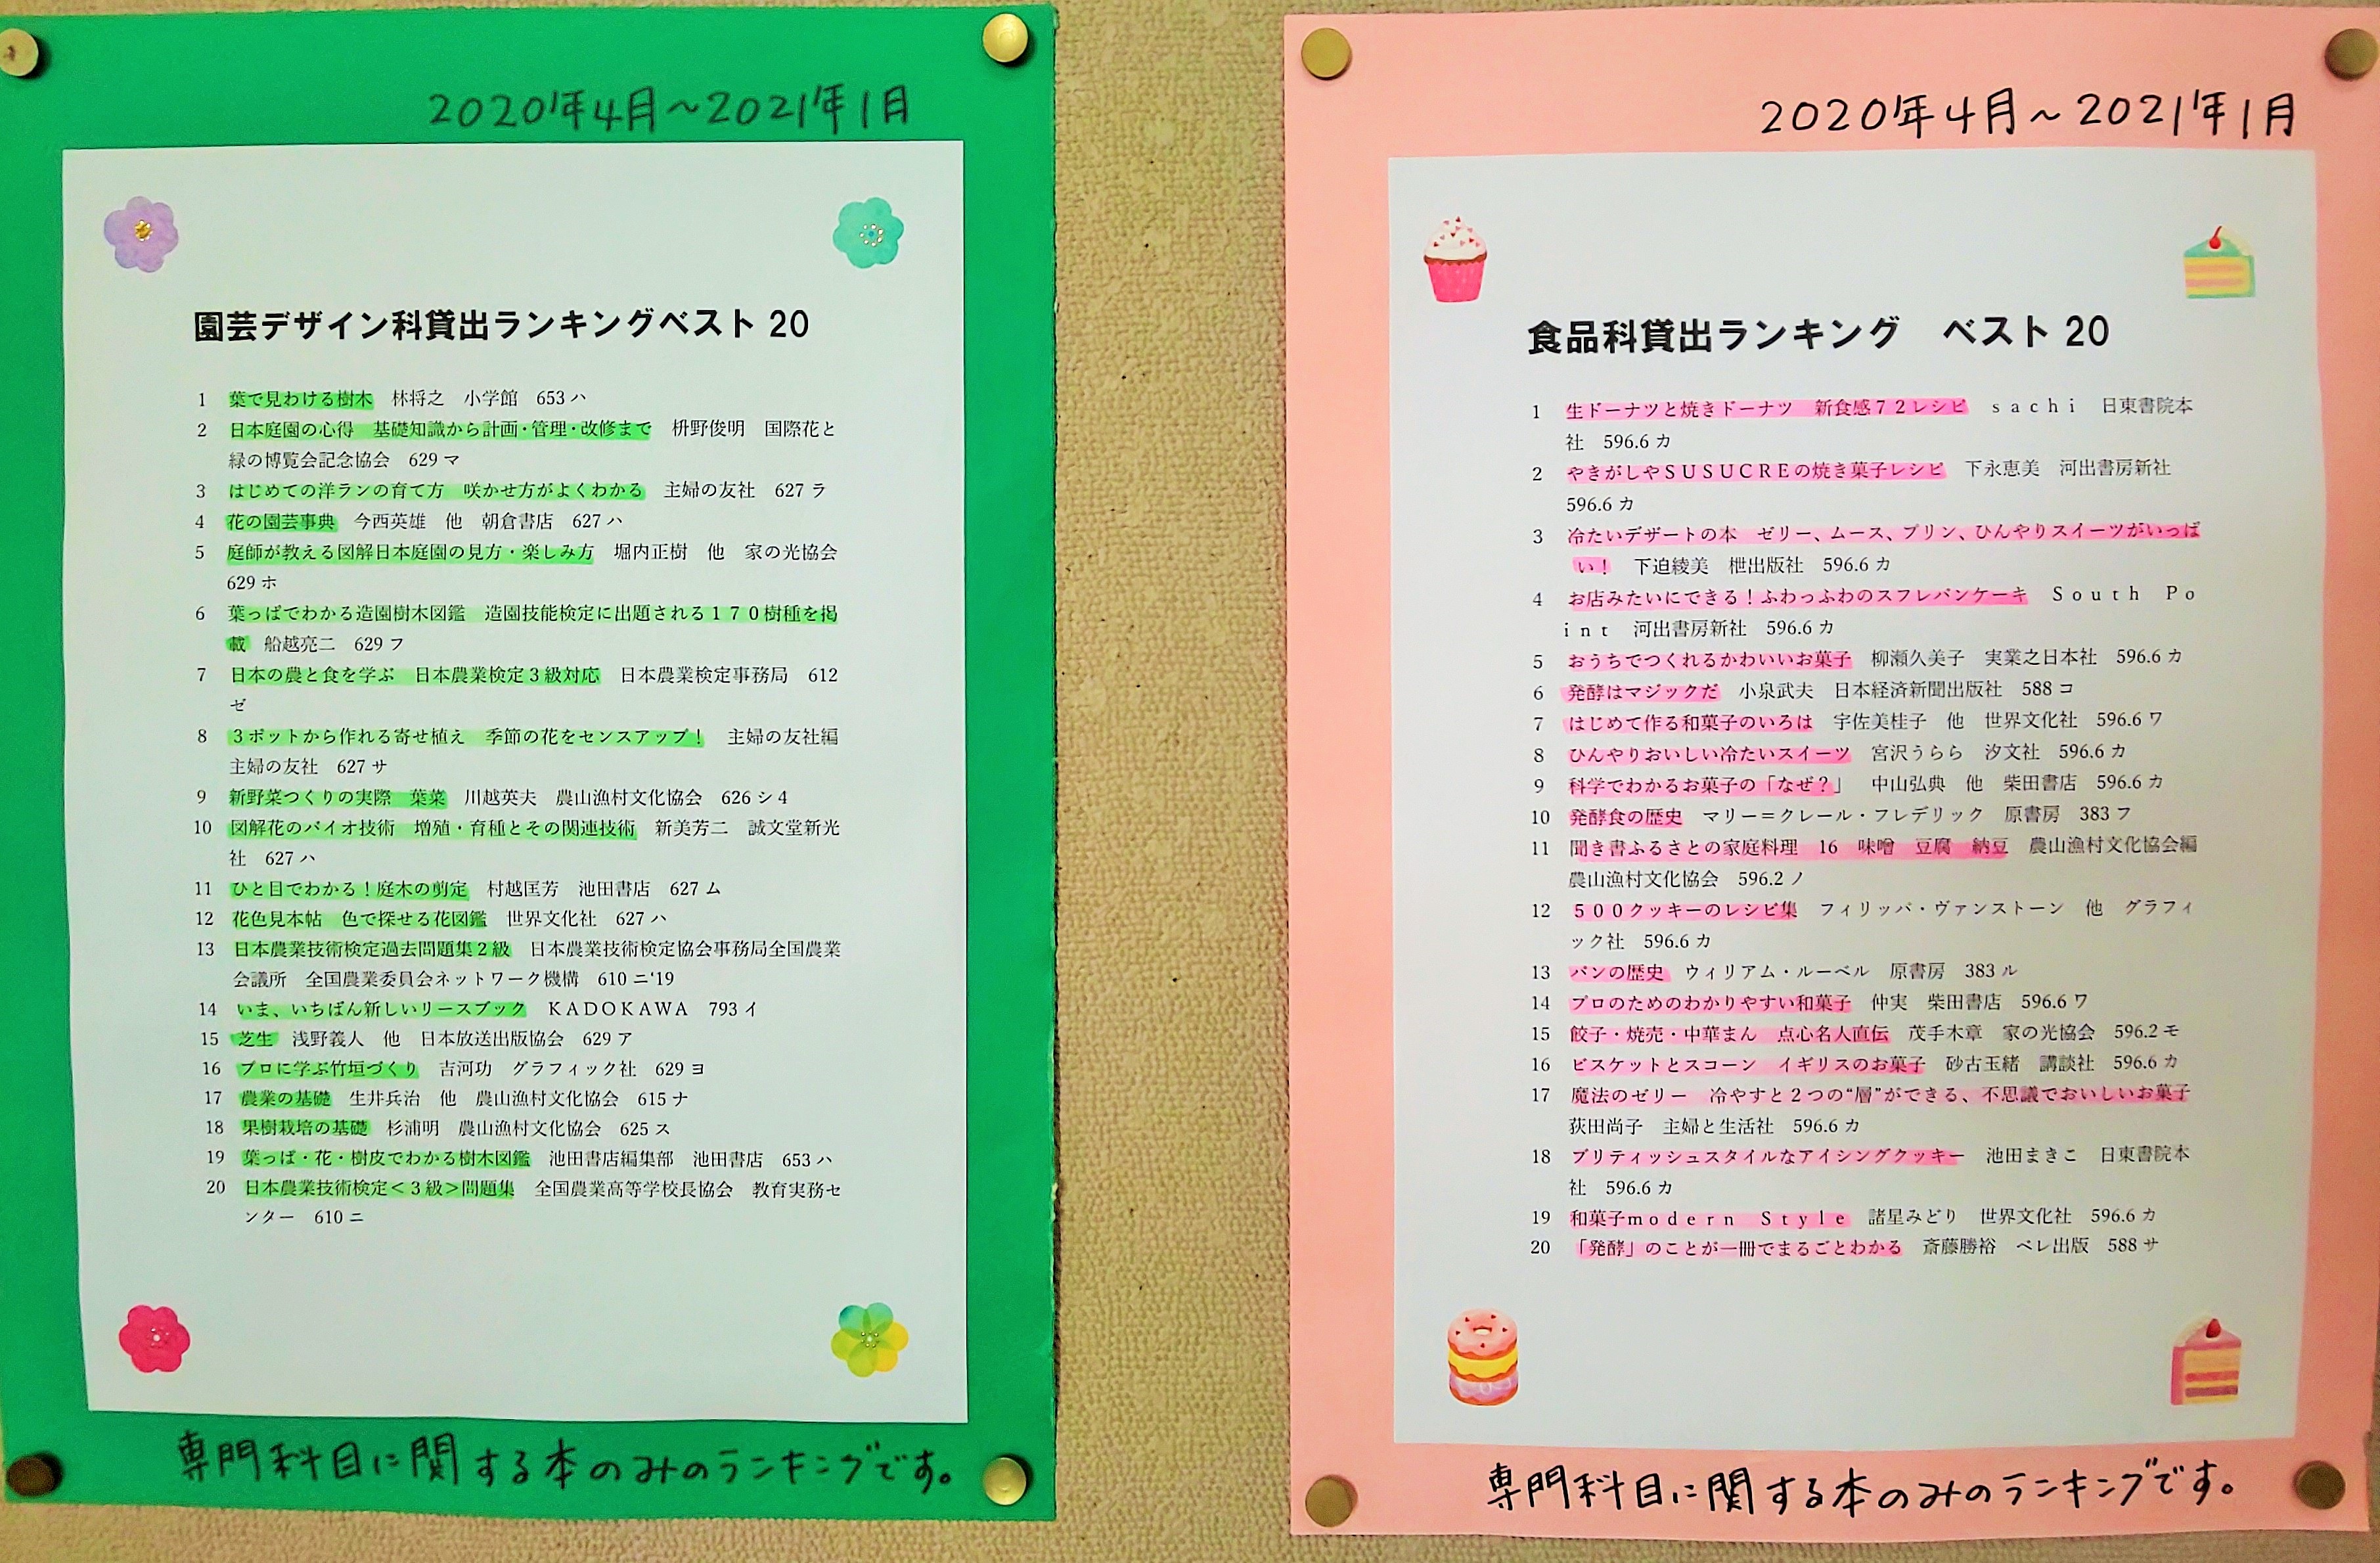 2020年4月～2021年1月
園芸デザイン科貸出ランキングベスト 20
1 葉で見わける樹木 林将之 小学館 653 ハ
2 日本庭園の心得 基礎知識から計画・管理・改修まで 枡野俊明 国際花と
緑の博覧会記念協会 629 マ
3 はじめての洋ランの育て方 咲かせ方がよくわかる 主婦の友社 627 ラ
4 花の園芸事典 今西英雄 他 朝倉書店 627 ハ
5 庭師が教える図解日本庭園の見方・楽しみ方 堀内正樹 他 家の光協会
629 ホ
6 葉っぱでわかる造園樹木図鑑 造園技能検定に出題される１７０樹種を掲
載 船越亮二 629 フ
7 日本の農と食を学ぶ 日本農業検定３級対応 日本農業検定事務局 612
ゼ
8 ３ポットから作れる寄せ植え 季節の花をセンスアップ！ 主婦の友社編
主婦の友社 627 サ
9 新野菜つくりの実際 葉菜 川越英夫 農山漁村文化協会 626 シ 4
10 図解花のバイオ技術 増殖・育種とその関連技術 新美芳二 誠文堂新光
社 627 ハ
11 ひと目でわかる！庭木の剪定 村越匡芳 池田書店 627 ム
12 花色見本帖 色で探せる花図鑑 世界文化社 627 ハ
13 日本農業技術検定過去問題集２級 日本農業技術検定協会事務局全国農業
会議所 全国農業委員会ネットワーク機構 610 ニ‘19
14 いま、いちばん新しいリースブック ＫＡＤＯＫＡＷＡ 793 イ
15 芝生 浅野義人 他 日本放送出版協会 629 ア
16 プロに学ぶ竹垣づくり 吉河功 グラフィック社 629 ヨ
17 農業の基礎 生井兵治 他 農山漁村文化協会 615 ナ
18 果樹栽培の基礎 杉浦明 農山漁村文化協会 625 ス
19 葉っぱ・花・樹皮でわかる樹木図鑑 池田書店編集部 池田書店 653 ハ
20 日本農業技術検定＜３級＞問題集 全国農業高等学校長協会 教育実務セ
ンター 610 ニ
専門科目に関する本のみのランキングです。
2020年4月～2021年1月
食品科貸出ランキング ベスト 20
1 生ドーナツと焼きドーナツ 新食感７２レシピ ｓａｃｈｉ 日東書院本
社 596.6 カ
2 やきがしやＳＵＳＵＣＲＥの焼き菓子レシピ 下永恵美 河出書房新社
596.6 カ
3 冷たいデザートの本 ゼリー、ムース、プリン、ひんやりスイーツがいっぱ
い！ 下迫綾美 枻出版社 596.6 カ
4 お店みたいにできる！ふわっふわのスフレパンケーキ Ｓｏｕｔｈ Ｐｏ
ｉｎｔ 河出書房新社 596.6 カ
5 おうちでつくれるかわいいお菓子 柳瀬久美子 実業之日本社 596.6 カ
6 発酵はマジックだ 小泉武夫 日本経済新聞出版社 588 コ
7 はじめて作る和菓子のいろは 宇佐美桂子 他 世界文化社 596.6 ワ
8 ひんやりおいしい冷たいスイーツ 宮沢うらら 汐文社 596.6 カ
9 科学でわかるお菓子の「なぜ？」 中山弘典 他 柴田書店 596.6 カ
10 発酵食の歴史 マリー＝クレール・フレデリック 原書房 383 フ
11 聞き書ふるさとの家庭料理 16 味噌 豆腐 納豆 農山漁村文化協会編
農山漁村文化協会 596.2 ノ
12 ５００クッキーのレシピ集 フィリッパ・ヴァンストーン 他 グラフィ
ック社 596.6 カ
13 パンの歴史 ウィリアム・ルーベル 原書房 383 ル
14 プロのためのわかりやすい和菓子 仲実 柴田書店 596.6 ワ
15 餃子・焼売・中華まん 点心名人直伝 茂手木章 家の光協会 596.2 モ
16 ビスケットとスコーン イギリスのお菓子 砂古玉緒 講談社 596.6 カ
17 魔法のゼリー 冷やすと２つの“層”ができる、不思議でおいしいお菓子
荻田尚子 主婦と生活社 596.6 カ
18 ブリティッシュスタイルなアイシングクッキー 池田まきこ 日東書院本
社 596.6 カ
19 和菓子ｍｏｄｅｒｎ Ｓｔｙｌｅ 諸星みどり 世界文化社 596.6 カ
20 「発酵」のことが一冊でまるごとわかる 斎藤勝裕 ベレ出版 588 サ
専門科目に関する本のみのランキングです。